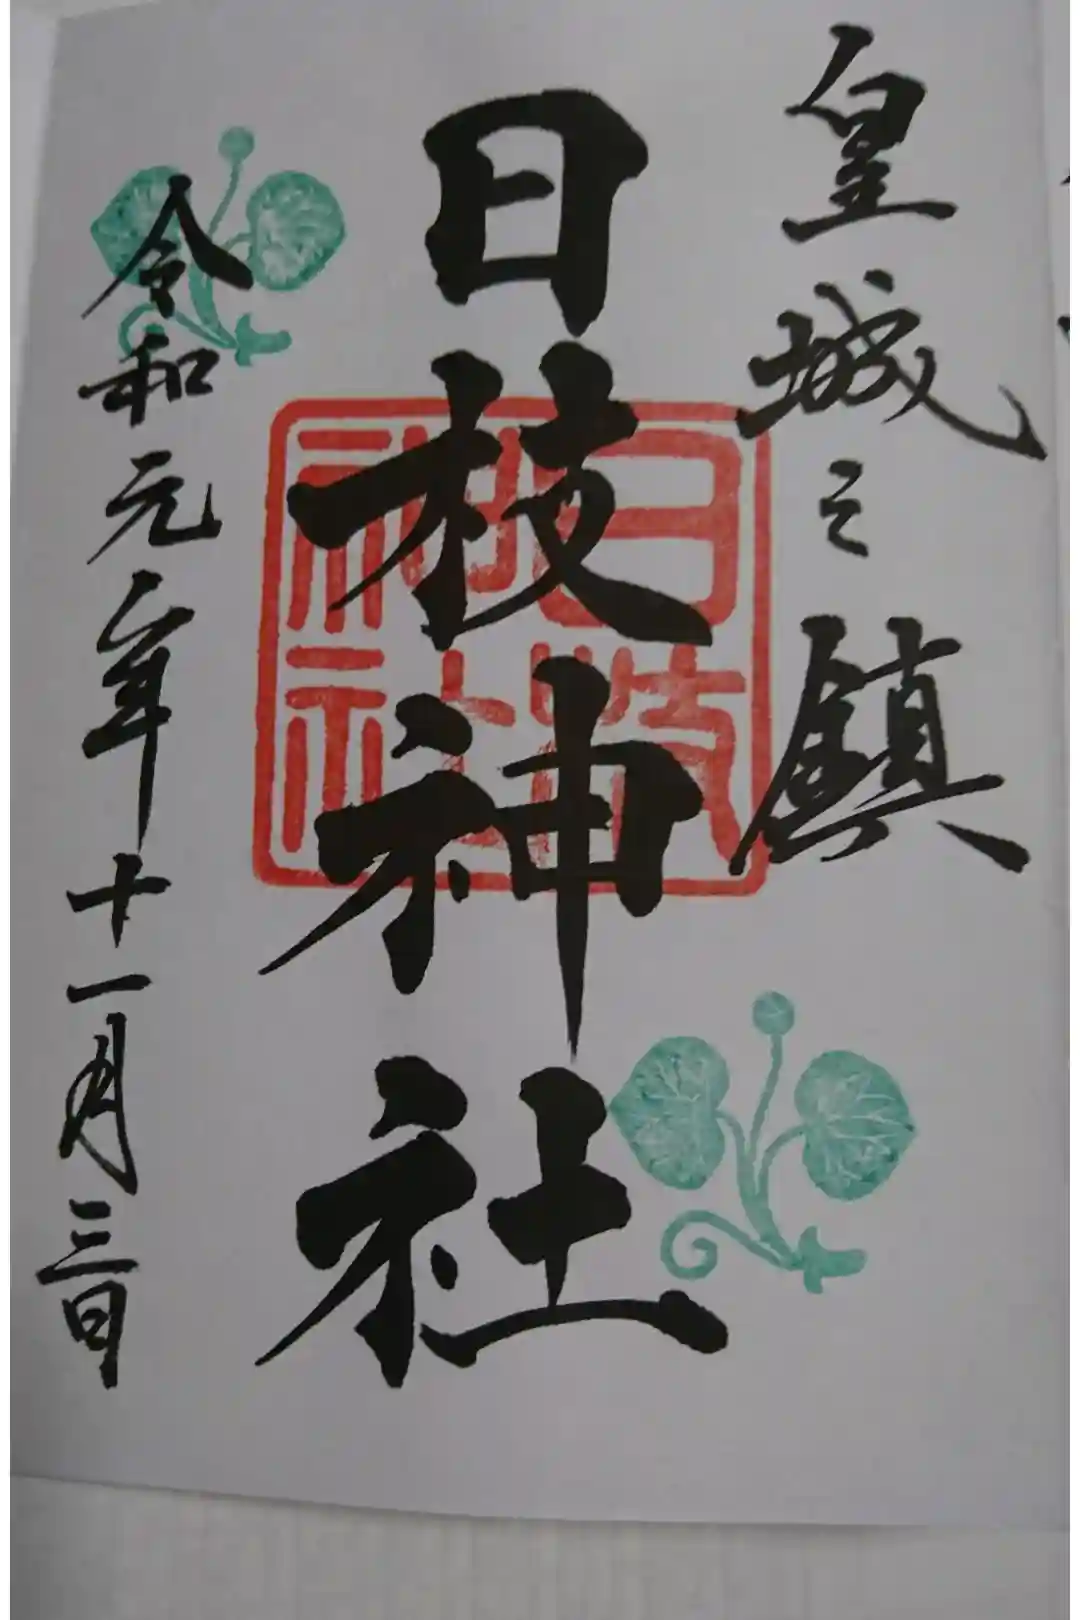 皇城之鎮
日枝神社
日枝神社
令和元年十一月三日